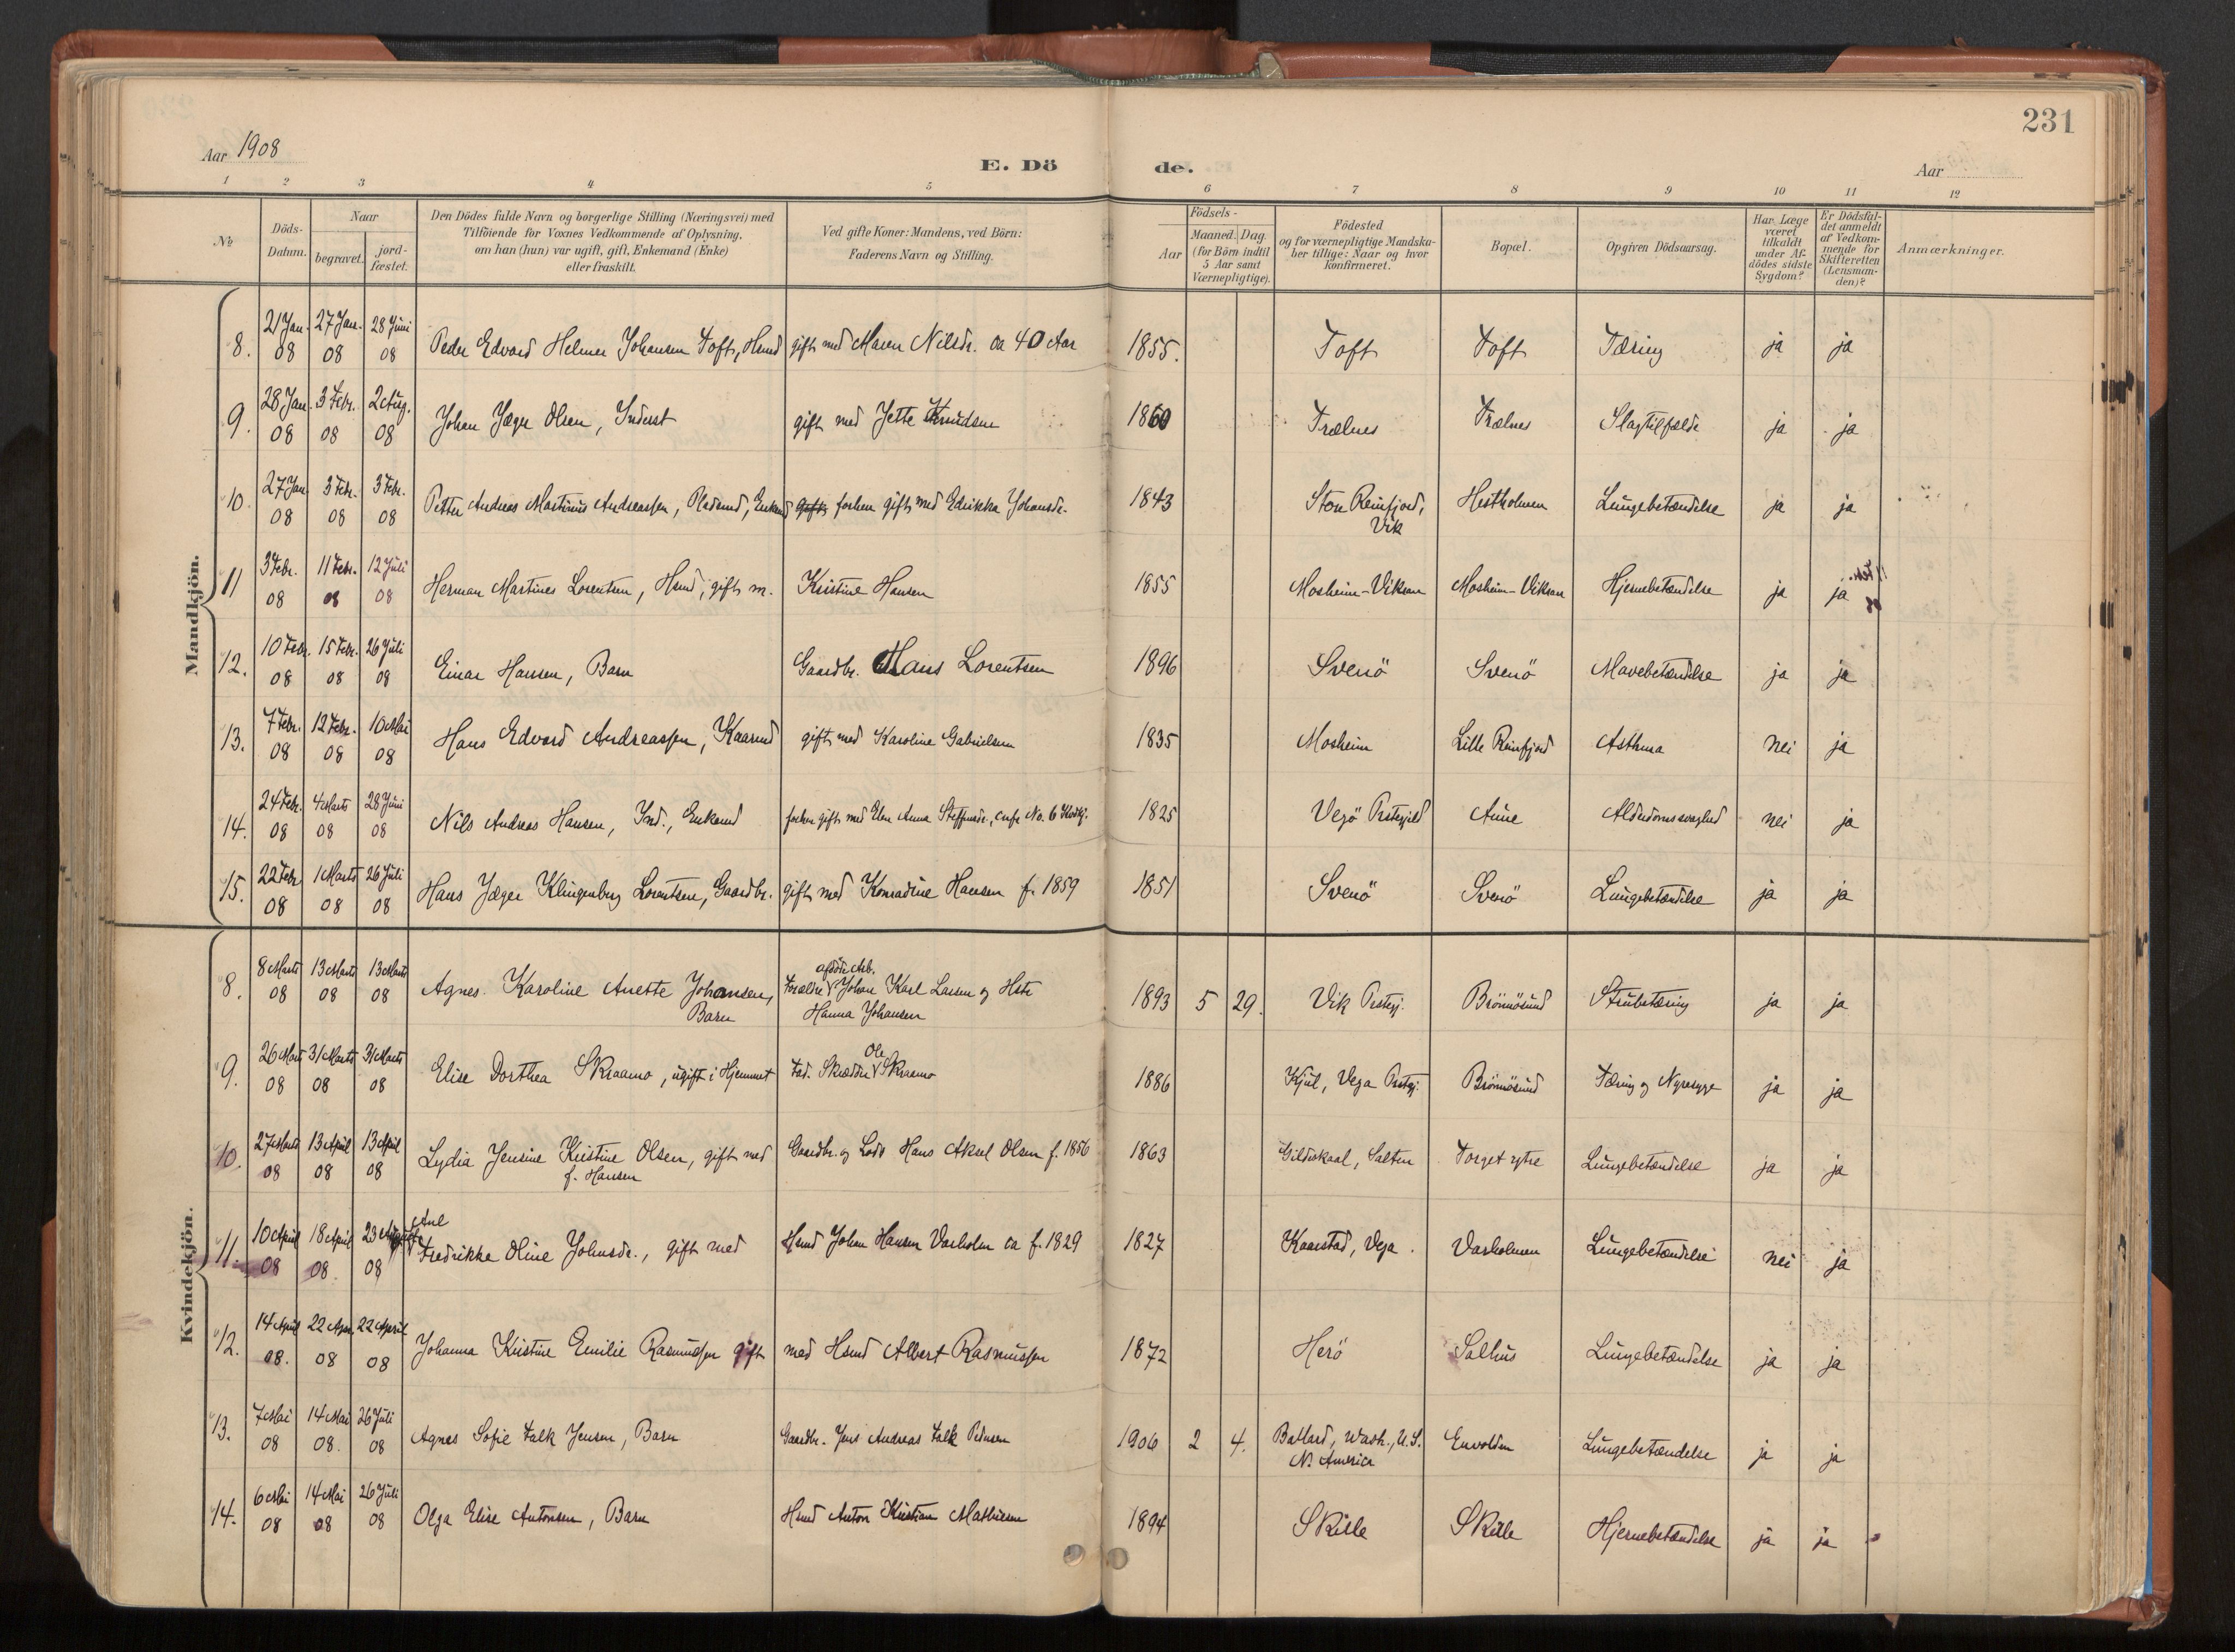 231
Aar 1908
E. Dö
de.
Aar
1 2 3 4 5 6 7 8 9 10 11 12
No
Döds-Datum.
Naar
begravet.
jord-fæstet.
Den Dödes fulde Navn og borgerlige Stilling (Næringsvei) med
Tilföiende for Voxnes Vedkommende af Oplysning,
om han (hun) var ugift, gift, Enkemand (Enke)
eller fraskilt.
Ved gifte Koner: Mandens, ved Börn:
Faderens Navn og Stilling.
Födsels-
Aar
Maaned. Dag.
(for Börn indtil
5 Aar samt
Værnepligtige).
Födested
og for værnepligtige Mandska-
ber tillige: Naar og hvor
konfirmeret.
Bopæl.
Opgiven Dödsaarsag.
Har Læge
været
tilkaldt
under Af-
dödes sidste
Sygdom?
Er Dödsfal-
det anmeldt
af Vedkom-
mende for
Skifteretten
(Lensman-
den)?
Anmærkninger.
Mandkjön.
8. 21 Jan. 08 27 Jan. 08 28 Juni 08 Peder Edvard Helmer Johansen Toft, Hsmd gift med Maren Nilsdr. ca 40 Aar 1855. Toft Toft Tæring ja ja
9. 28 Jan. 08 3 Febr. 08 2 Aug. 08 Johan Jæger Olsen, Inderst gift med Jette Knudsen 1860 Trælnes Trælnes Slagtilfælde ja ja
10. 27 Jan. 08 3 Febr. 08 3 Febr. 08 Petter Andreas Martinus Andreassen, Pladsmd, Enkemd gift forhen gift med Edrikka Johansdr. 1843 Store Reinfjord, Vik Hestholmen Lungebetændelse ja ja
11 3 Febr. 08 11 Febr. 08 12 Juli 08 Herman Martines Lorentsen, Hsmd, gift m. Kristine Hansen 1855 Mosheim-Viksan Mosheim-Viksan Hjernebetændelse ja ja
12. 10 Febr. 08 15 Febr. 08 26 Juli 08 Einar Hansen, Barn Gaardbr. Hans Lorentsen 1896 Svenö Svenö Mavebetændelse ja ja
13. 7 Febr. 08 12 Febr. 08 10 Mai 08 Hans Edvard Andreassen, Kaarmd gift med Karoline Gabrielsen 1835 Mosheim Lille Reinfjord Asthma nei ja
14. 24 Febr. 08 4 Marts 08 28 Juni 08 Nils Andreas Hansen, Ind., Enkemd forhen gift med Elen Anna Steffensdr., cnfr No. 6 Kvdkj. 1825 Vegö Prstgjeld Aune Alderdomssvaghed nei ja
15. 22 Febr 08 1 Marts 08 26 Juli 08 Hans Jæger Klingenberg Lorentsen, Gaardbr. gift med Konradine Hansen f. 1859 1851 Svenö Svenö Lungebetændelse ja ja
Kvindekjön.
8. 8 Marts 08 13 Marts 08 13 Marts 08 Agnes Karoline Anette Johansen, Barn Forældre afdöde Arb. Johan Karl Larsen og Hstr Hanna Johansen 1893 5 29. Vik Prstgj. Brönnösund Strubetæring ja ja
9. 26 Mart 08 31 Marts 08 31 Marts 08 Elise Dorthea Skraamo, ugift i Hjemmet Fad. Skrædder Ole Skraamo 1886 Kjul, Vega Prstgj. Brönnösund Tæring og Nyresyge ja ja
10. 27 Marts 08 13 April 08 13 April 08 Lydia Jensine Kristine Olsen, gift med f. Hansen Gaardbr. og Lods Hans Aksel Olsen f. 1856 1863 Gildeskaal, Salten Torget ytre Lungebetændelse ja ja
11. 10 April 08 18 April 08 23 August 08 Ane Fredrikke Oline Johnsdr., gift med Hsmd Johan Hansen Varholm ca f. 1829 1827 Kaarstad, Vega. Varholmen Lungebetændelse nei ja
12. 14 April 08. 22 Apr. 08 22 April 08 Johanna Kristine Emilie Rasmussen gift med Hsmd Albert Rasmussen 1872 Herö Salhus Lungebetændelse ja ja
13. 7 Mai 08 14 Mai 08. 26 Juli 08 Agnes Sofie Falk Jensen, Barn Gaardbr. Jens Andreas Falk Pedersen 1906 2 4. Ballard, Wash., U.S. N. America Envolden Lungebetændelse ja ja
14. 6 Mai 08 14 Mai 08 26 Juli 08 Olga Elise Antonsen, Barn Hsmd Anton Kristian Mathisen 1894 Skille Skille Hjernebetændelse ja ja